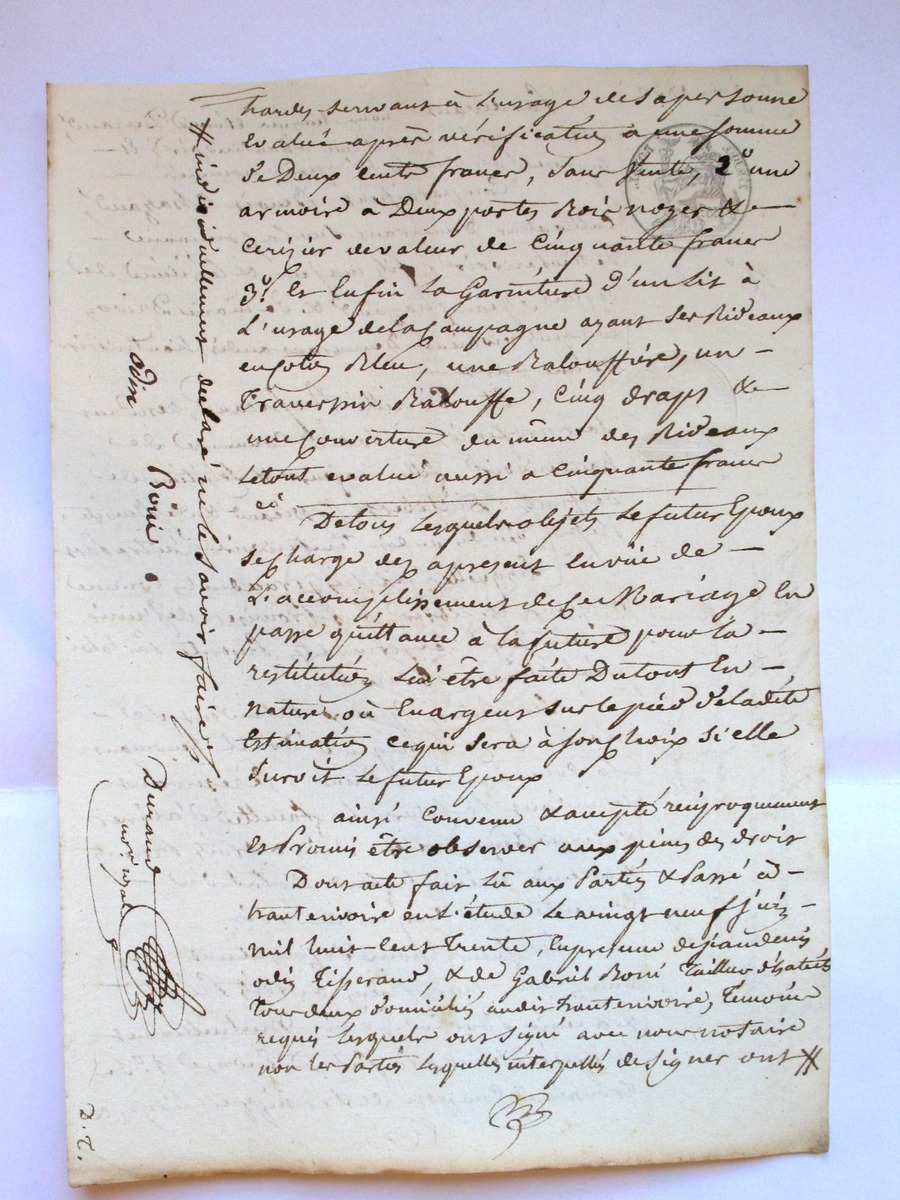 hardes servant à l'usage de sa personne
évalué après vérification a une somme
de Deux cents francs, sans vente, 2° une
armoire à Deux portes Bois noyer &
cerizier de valeur de Cinquante francs
3°. Et Enfin La Garniture d'un Lit à
L'usage de la Campagne ayant ses Rideaux
en coton Bleu, une Balouffière, un
Traversin Balouffe, Cinq draps &
une Couverture du même des Rideaux
Le tout evalué aussi a Cinquante francs
ci
De tous Lesquels objets Le futur Epoux
se charge dez apresent en vüe de
L'accomplissement de ce Mariage En
passe quittance à la future pour la
restitution Lui être faite Du tout En
nature où En argent sur le pied de ladite
Estimation ce qui sera à son Choix si elle
survit Le futur Epoux
ainsi Convenu & accepté réciproquement
Et Promis être observer aux peines de droit
Dont acte fait Lû aux Parties & Passé à
hauterivoire en L'étude Le vingt neuf Juin
mil huit-Cent Trente, En presence de Jeandenis
odin Tisserand, & de Gabriel Boni Tailleur d'habits
Tous deux domiciliés audit hauterivoire, Témoins
requis Lesquels ont signé avec nous notaire
non Les Parties Lesquelles interpellés de signer ont #
# individuellement declaré ne le savoir faire
odin
Boni
Durand
not. royal
D. T.